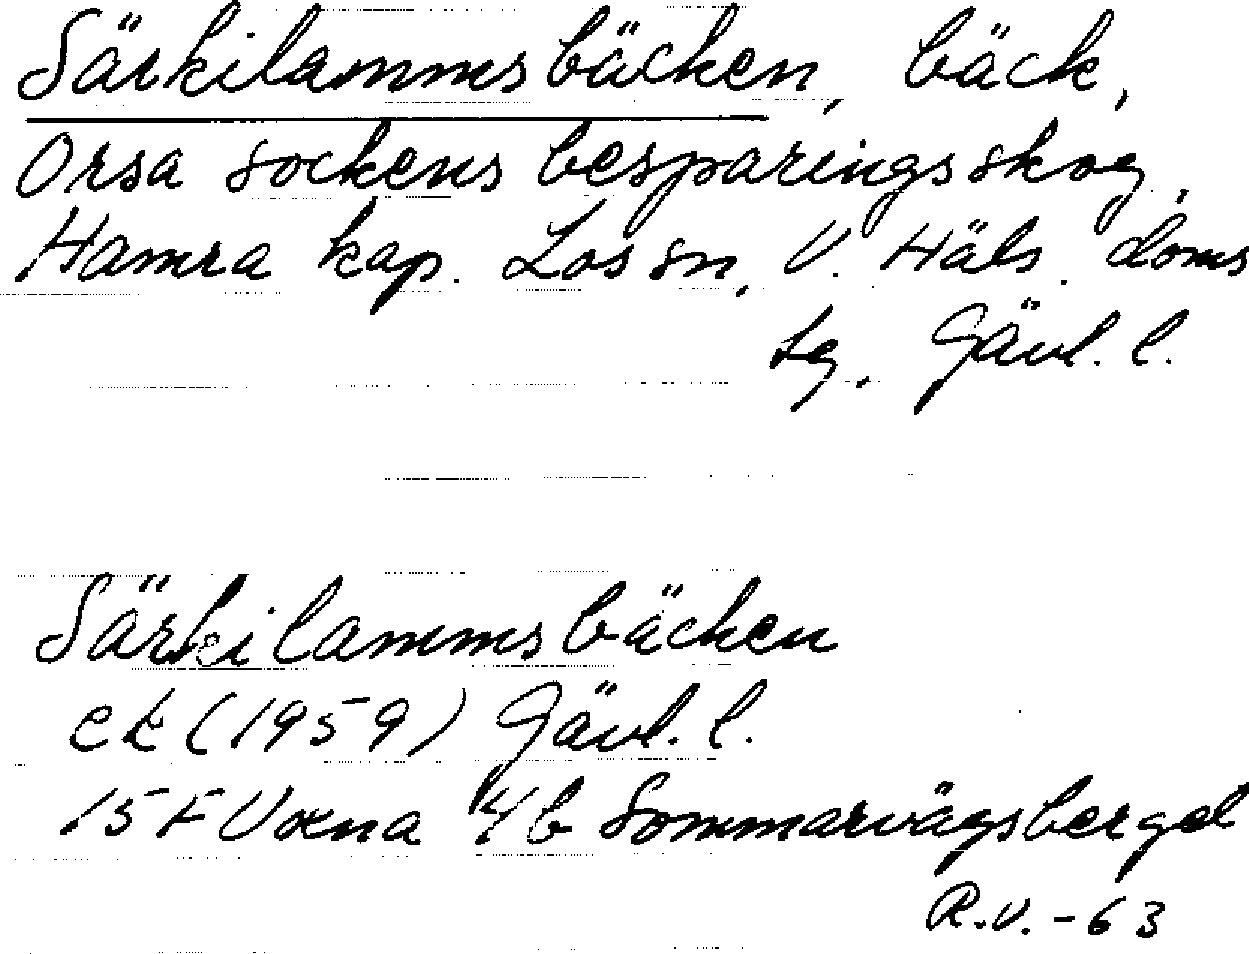 Särkilammsbäcken, bäck,
Orsa sockens besparingsskog,
Hamra kap. Los sn, V. Häls. doms
sg. Gävl. l.
Särkilammsbäcken
ek (1959) Gävl. l.
15 F Voxna 4b Sommarvägsberget
R.V. - 63